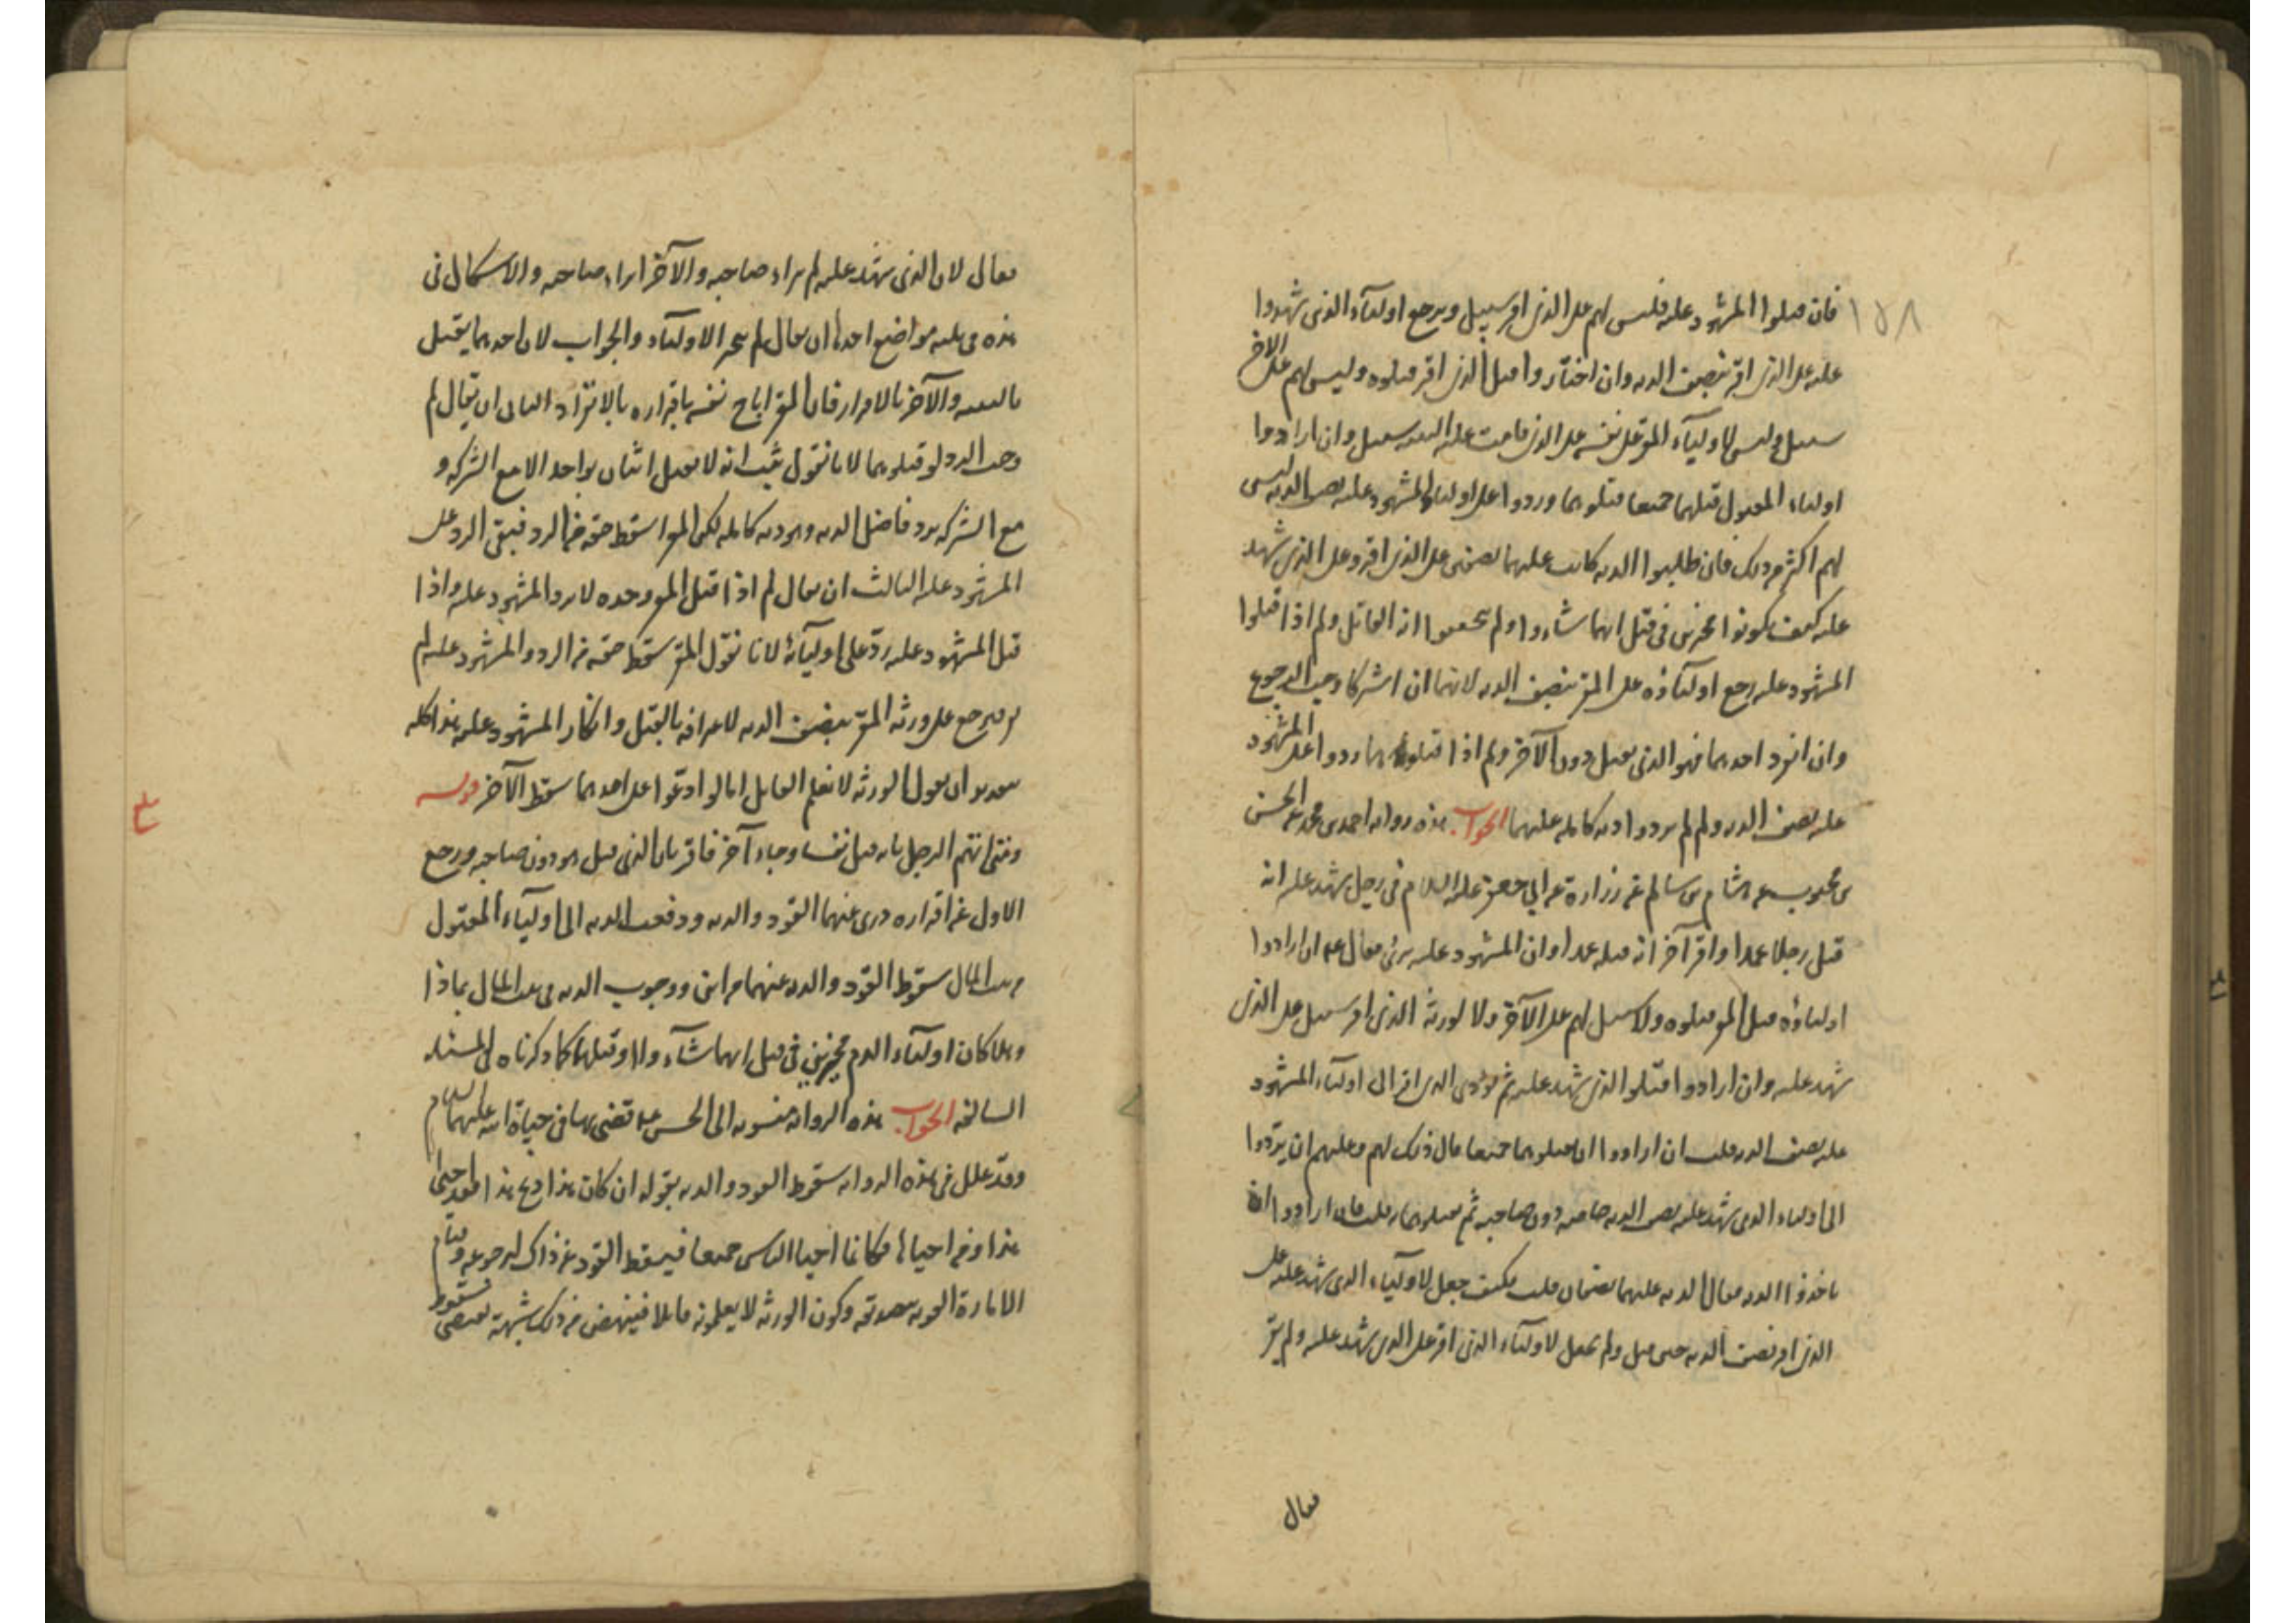 ١٥٨
فان قتلوا المشهود عليه فليس لهم على الذى اقر سبيل ويرجع اولياء الذى شهدوا
عليه على الذى اقر بنصف الديه وان اختاروا قتل الذى اقر قتلوه وليس لهم على الاخر
سبيل وليس لاولياء المقر على نفسه على الذى قامت عليه البينه سبيل وان ارادوا
اولياء المقتول قتلهما جميعا قتلوهما وردوا على اولياء المشهود عليه نصف الديه ليس
لهم اكثر من ذلك فان طلبوا الديه كانت عليهما نصفين على الذى اقر وعلى الذى شهد
عليه كيف يكونوا مخيرين فى قتل ايهما شاءوا ولم يتحققوا انه القاتل ولم اذا قتلوا
المشهود عليه رجع اولياؤه على المقر بنصف الديه لانهما ان اشتركا وجب الرجوع
وان انفرد احدهما فهو الذى يقتل دون الآخر ولم اذا قتلوهما ردوا على المشهود
عليه نصف الديه ولم لم يردوا ديه كامله عليهما الجواب هذه رواية احمد بن محمد عن الحسن
بن محبوب عن هشام بن سالم عن زرارة عن ابي جعفر عليه السلام في رجل شهد عليه انه
قتل رجلا عمدا واقر آخر انه قتله عمدا وان المشهود عليه برئ فقال ان ارادوا
اولياؤه قتل المقر قتلوه ولا سبيل لهم على الآخر ولا لورثة الذى اقر سبيل على الذى
شهد عليه وان ارادوا قتلوا الذى شهد عليه ثم يؤدى الذى اقر الى اولياء المشهود
عليه نصف الديه قلت ان ارادوا ان يقتلوهما جميعا قال ذلك لهم وعليهم ان يردوا
الى اولياء الذى شهد عليه نصف الديه خاصه دون صاحبه ثم يقتلوهما قلت فان ارادوا ان
ياخذوا الديه فقال الديه عليهما نصفان قلت فكيف جعل لاولياء الذى شهد عليه على
الذى اقر نصف الديه حين قتل ولم يجعل لاولياء الذى اقر على الذى شهد عليه ولم يقر
فقال
فقال لان الذى شهد عليه لم يبراء صاحبه والآخر ابراء صاحبه والاشكال فى
هذه فى ثلثه مواضع احدها ان يقال لم يخير الاولياء والجواب لان احدهما يقتل
بالبينه والآخر بالاقرار فان المقر اباح نفسه باقراره بالانفراد الثانى ان يقال لم
وجب الرد لو قتلوهما لانا نقول ثبت انه لا يقتل اثنان بواحد الا مع الشركه و
مع الشركه يرد فاضل الديه وهو ديه كامله لكن المقر اسقط حقه من الرد فبقى الرد على
المشهود عليه الثالث ان يقال لم اذا قتل المقر وحده لا يرد المشهود عليه واذا
قتل المشهود عليه رد على اوليائه لانا نقول المقر سقط حقه من الرد والمشهود عليه لم
يقر فيرجع على ورثه المقر بنصف الديه لاعترافه بالقتل وانكار المشهود عليه هذا كله
بتقدير ان يقول الورثه لا نعلم القاتل اما لو ادعوا على احدهما سقط الآخر قوله
ومتى اتهم الرجل بانه قتل نفسا وجاء آخر فاقر بان الذى قتل هو دون صاحبه ورجع
الاول عن اقراره درى عنهما القود والديه ودفعت الديه الى اولياء المقتول
من بيت المال سقوط القود والديه عنهما من اين ووجوب الديه فى بيت المال بماذا
وهلا كان اولياء الدم مخيرين فى قتل ايهما شاءوا او قتلهما كما ذكرناه فى المسئله
السالفه الجواب هذه الروايه منسوبه الى الحسن قضى بها فى حياة ابيه عليهما السلام
وقد علل فى هذه الروايه سقوط القود والديه بقوله ان كان هذا ذبح هذا فقد احيى
هذا ومن احياها فكانما احيا الناس جميعا فيسقط القود عن ذاك لرجوعه وقيام
الامارة القويه بصدقه وكون الورثه لا يعلمونه قاتلا فينهض من ذلك شبهة تقتضى سقوط